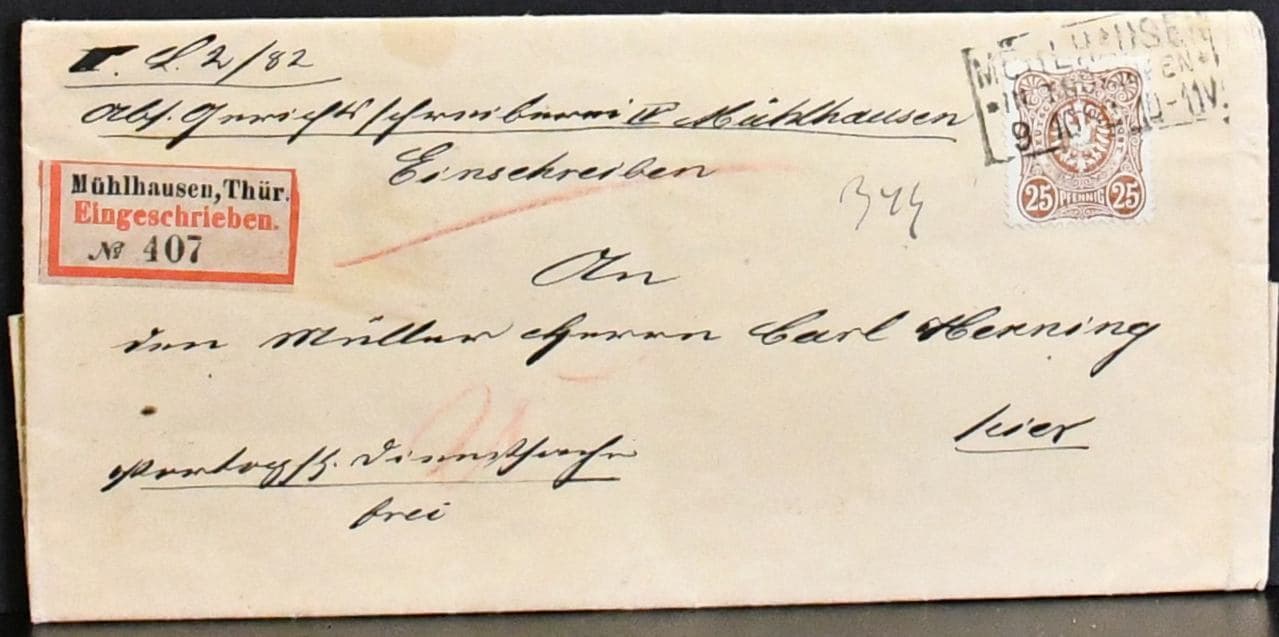 II. L. 2/82
Abs. Gerichtsschreiberei IV Mühlhausen
Einschreiben
Mühlhausen, Thür.
Eingeschrieben.
№ 407
MÜHLHAUSEN
IN THÜRINGEN
9 10 10-11V.
25 PFENNIG 25
An
den Müller Herrn Carl Henning
hier
Portopfl. Dienstsache
frei